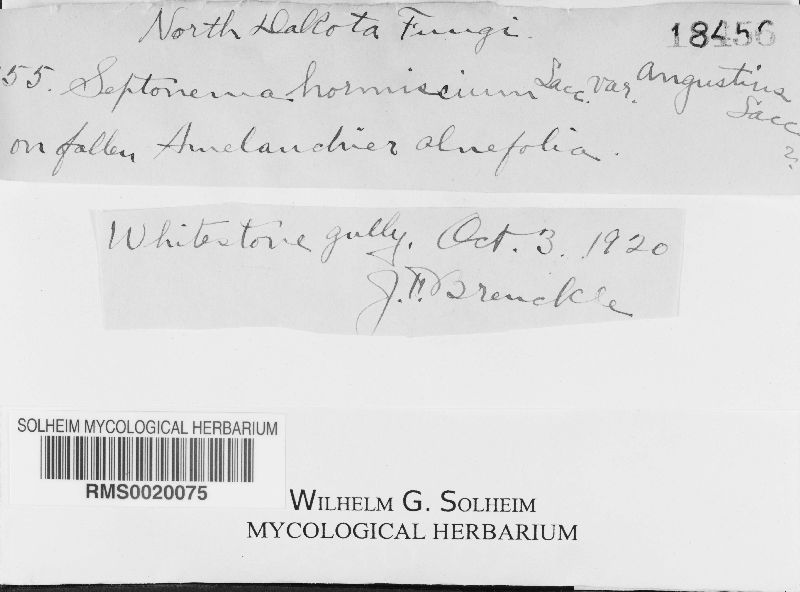 North Dakota Fungi. 18456
55. Septonema hormiscium Sacc. var. Angustius
Sacc
on fallen Amelanchier alnefolia. ?
Whitestone gully. Oct. 3. 1920
J.F. Brenckle
SOLHEIM MYCOLOGICAL HERBARIUM
RMS0020075
WILHELM G. SOLHEIM
MYCOLOGICAL HERBARIUM